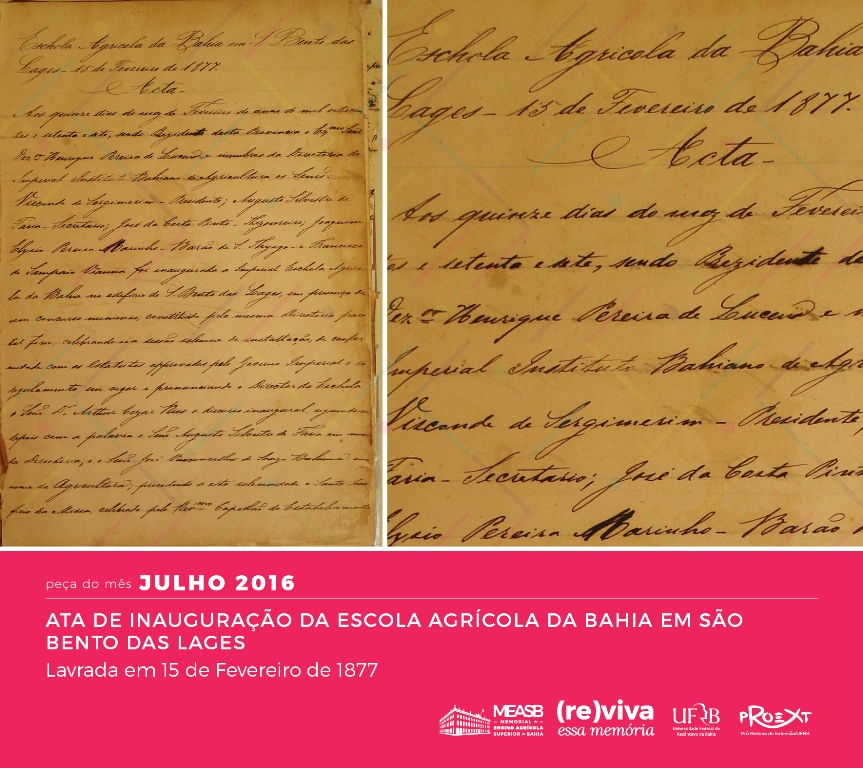 Eschola Agricola da Bahia em S. Bento das
Lages – 15 de Fevereiro de 1877.
Acta –
Aos quinze dias do mez de Fevereiro do anno de mil oitocen
tos e setenta e sete, sendo Prezidente desta Provincia o Exmo Senr
Dezor Henrique Pereira de Lucena e membros da Directoria do
Imperial Instituto Bahiano de Agricultura os Senrs:
Visconde de Sergimerim – Presidente; Augusto Silvestre de
Faria – Secretario; José da Costa Pinto – Thezoureiro; Joaquim
Elysio Pereira Marinho – Barão de S. Thyago – e Francisco
de Sampaio Vianna foi inaugurada a Imperial Eschola Agrico
la da Bahia no edificio de S. Bento das Lages, em presença de
um concurso numeroso, constituida pela mesma Directoria para
tal fim, celebrando-se a sessão solemne de installação, de confor
midade com os Estatutos approvados pelo Governo Imperial e o
regulamento em vigor e pronunciando o Director da Eschola
o Senr Dr. Arthur Cezar Rios o discurso inaugural, seguindo
depois com a palavra o Senr Augusto Silvestre de Faria em nome
da Directoria, e o Senr José
nome da Agricultura, precedendo a esta solemnidade o Santo Sacri
ficio da Missa, celebrado pelo Revmo Capellão do Estabelecimento
Eschola Agricola da Bahia
Lages – 15 de Fevereiro de 1877.
Acta –
Aos quinze dias do mez de Feverei
tos e setenta e sete, sendo Prezidente de
Dezor Henrique Pereira de Lucena e m
Imperial Instituto Bahiano de Agr
Visconde de Sergimerim – Presidente;
Faria – Secretario; José da Costa Pint
Elysio Pereira Marinho – Barão d
peça do mês JULHO 2016
ATA DE INAUGURAÇÃO DA ESCOLA AGRÍCOLA DA BAHIA EM SÃO
BENTO DAS LAGES
Lavrada em 15 de Fevereiro de 1877
MEASB
MEMORIAL DO
ENSINO AGRÍCOLA
SUPERIOR DA BAHIA
(re)viva
essa memória
UFRB
Universidade Federal do
Recôncavo da Bahia
PROEXT
Pró-Reitoria de Extensão/UFRB